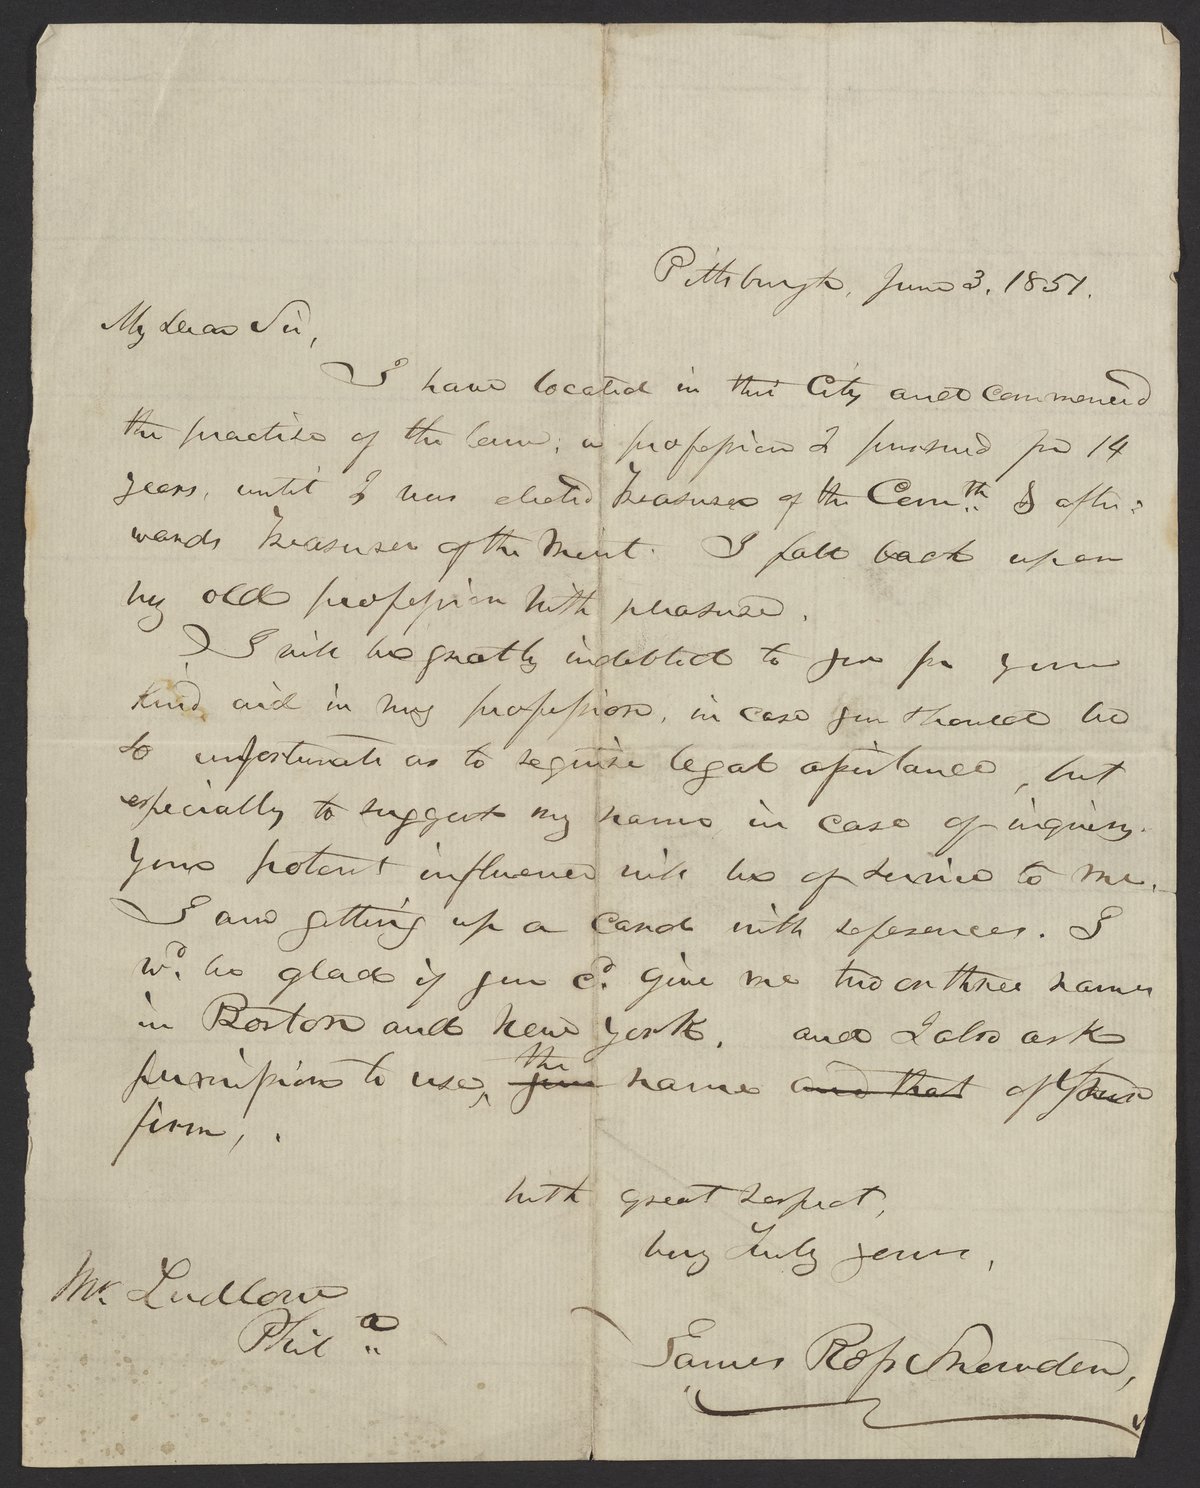 Pittsburgh, June 3. 1851.
My Dear Sir,
I have located in this City and commenced
the practise of the law, a profession I pursued for 14
years, until I was elected Treasurer of the Comth. & after=
wards Treasurer of the Mint. I fall back upon
my old profession with pleasure.
I will be greatly indebted to you for your
kind aid in my profession, in case you should be
so unfortunate as to require legal assistance, but
especially to suggest my name in case of inquiry.
Your potent influence will be of service to me.
I am getting up a card with references. I
wd. be glad if you cd. give me two or three names
in Boston and New York. and I also ask
permission to use, the
your name and that of your
firm,.
With great respect,
Very truly yours,
Mr. Ludlow
Phila
James Ross Snowden,